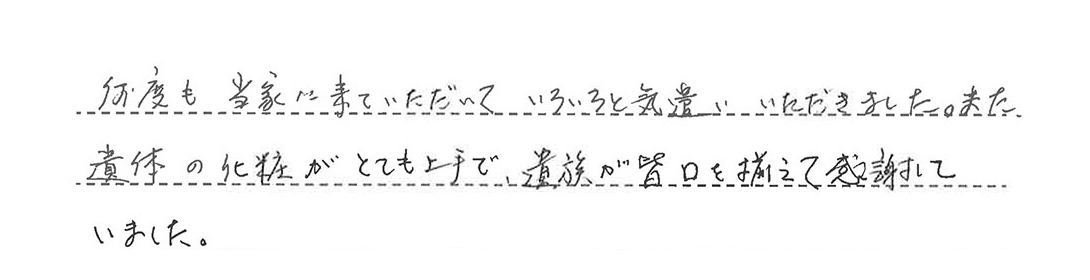 何度も当家に来ていただいていろいろと気遣いいただきました。また、
遺体の化粧がとても上手で、遺族が皆口を揃えて感謝して
いました。